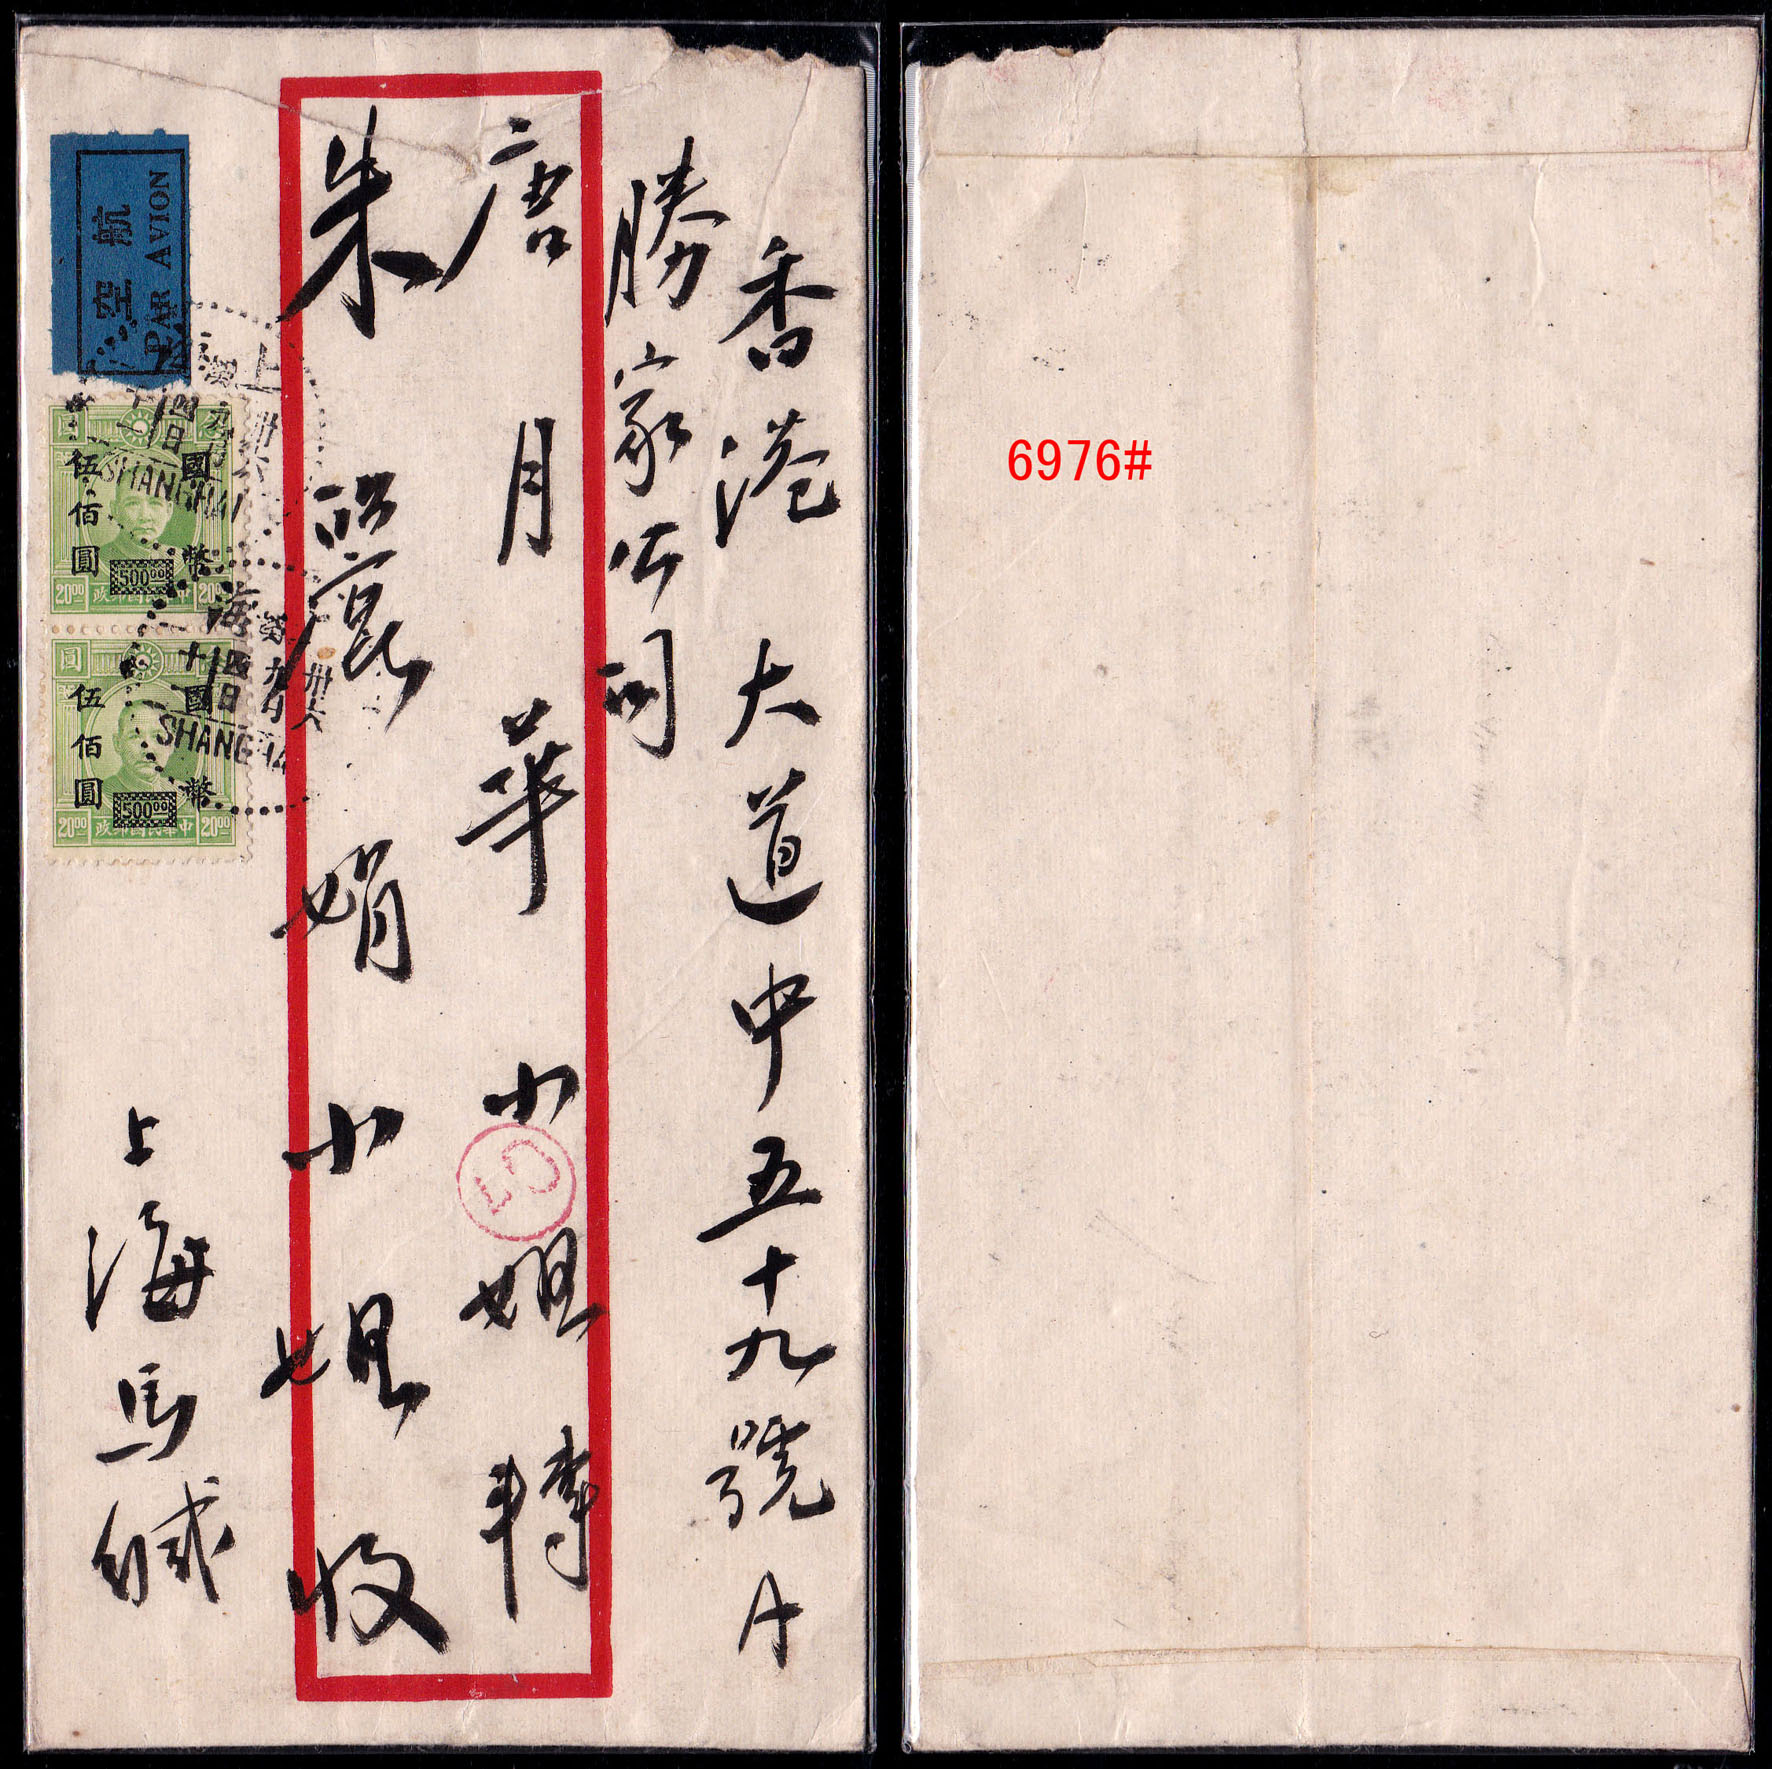 香港大道中五十九號A
勝家公司
唐月華小姐轉
朱照寰娟小姐收
上海馬緘
航空
PAR AVION
國幣
伍佰圓
500.00
20.00
中華民國郵政
20.00
國幣
伍佰圓
500.00
20.00
中華民國郵政
20.00
上海
SHANGHAI
SHANGHAI
6976#